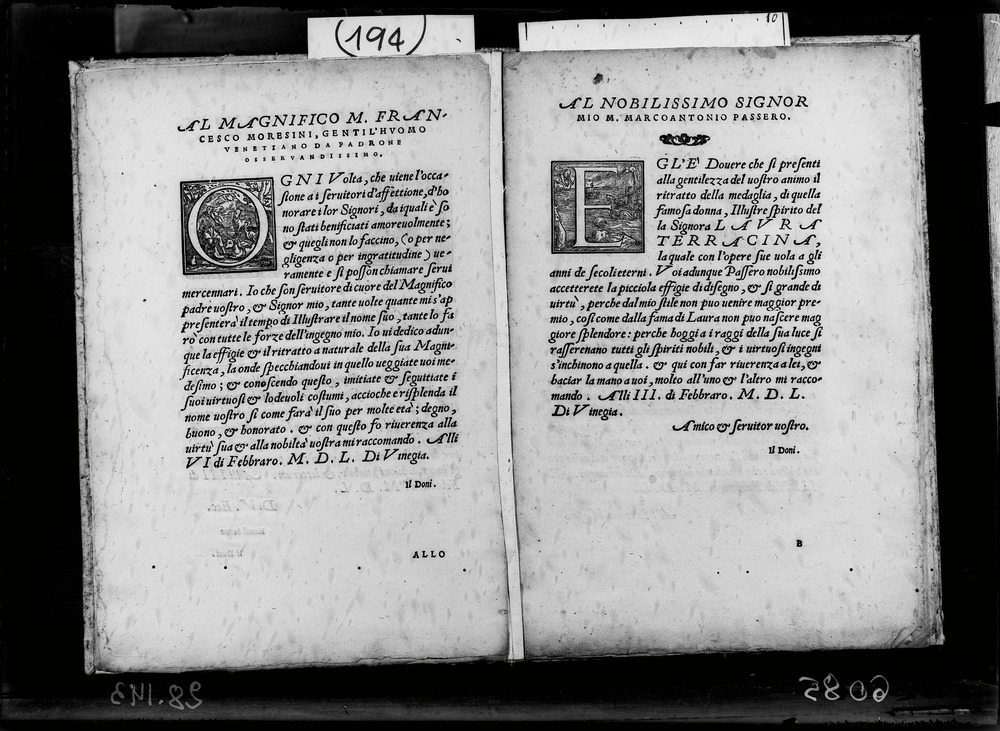 (194)
10
AL MAGNIFICO M. FRAN-
CESCO MORESINI, GENTIL'HVOMO
VENETIANO DA PADRONE
OSSERVANDISSIMO.
OGNI Volta, che uiene l'occa-
sione a i seruitori d'affettione, d'ho
norare i lor Signori, da iquali è so
no stati benificiati amoreuolmente;
& quegli non lo faccino, (o per ne-
gligenza o per ingratitudine) ue-
ramente e si posson chiamare serui
mercennari. Io che son seruitore di cuore del Magnifico
padre uostro, & Signor mio, tante uolte quante mi s'ap
presenterà il tempo di Illustrare il nome suo, tante lo fa
rò con tutte le forze dell'ingegno mio. Io ui dedico adun-
que la effigie & il ritratto a naturale della sua Magni-
ficenza, la onde specchiandoui in quello ueggiate uoi me-
desimo; & conoscendo questo, imitiate & seguitiate i
suoi uirtuosi & lodeuoli costumi, accioche e risplenda il
nome uostro si come farà il suo per molte età; degno,
buono, & honorato. & con questo fo riuerenza alla
uirtù sua & alla nobiltà uostra mi raccomando. Alli
VI di Febbraro. M. D. L. Di Vinegia.
Il Doni.
ALLO
AL NOBILISSIMO SIGNOR
MIO M. MARCOANTONIO PASSERO.
EGL'È Douere che si presenti
alla gentilezza del uostro animo il
ritratto della medaglia, di quella
famosa donna, Illustre spirito del
la Signora LAVRA
TERRACINA,
la quale con l'opere sue uola a gli
anni de secoli eterni. Voi adunque Passero nobilissimo
accetterete la picciola effigie di disegno, & si grande di
uirtù, perche dal mio stile non puo uenire maggior pre-
mio, cosi come dalla fama di Laura non puo nascere mag
giore splendore: perche hoggi a i raggi della sua luce si
rasserenano tutti gli spiriti nobili, & i uirtuosi ingegni
s'inchinono a quella. & qui con far riuerenza a lei, &
baciar la mano a uoi, molto all'uno & l'altro mi racco-
mando. Alli III. di Febbraro. M. D. L.
Di Vinegia.
Amico & seruitor uostro.
Il Doni.
B
28.143
6085